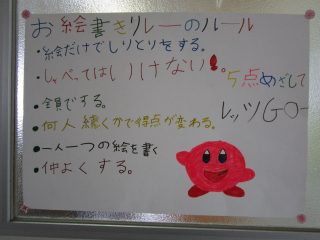 お絵書きリレーのルール
・絵だけでしりとりをする。
・しゃべってはいけない!。
・全員でする。
・何人続くかで得点が変わる。
・一人一つの絵を書く
・仲よくする。
5点めざして
レッツGO-